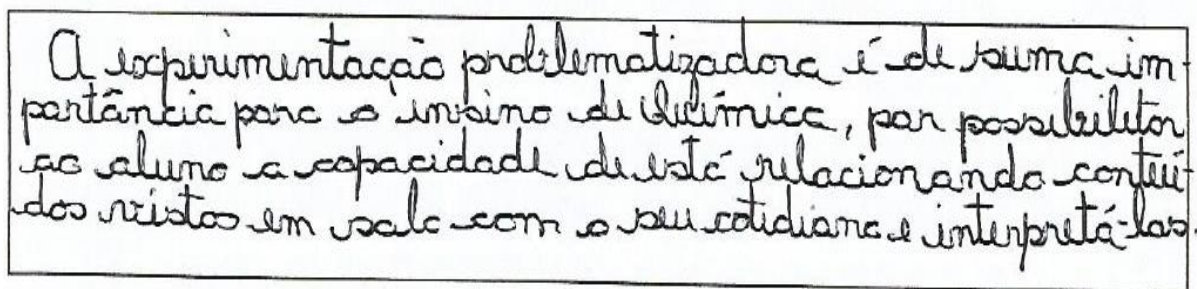 A experimentação problematizadora é de suma im-
portância para o ensino de Química, por possibilitar
ao aluno a capacidade de está relacionando conteú-
dos vistos em sala com o seu cotidiano e interpretá-los.